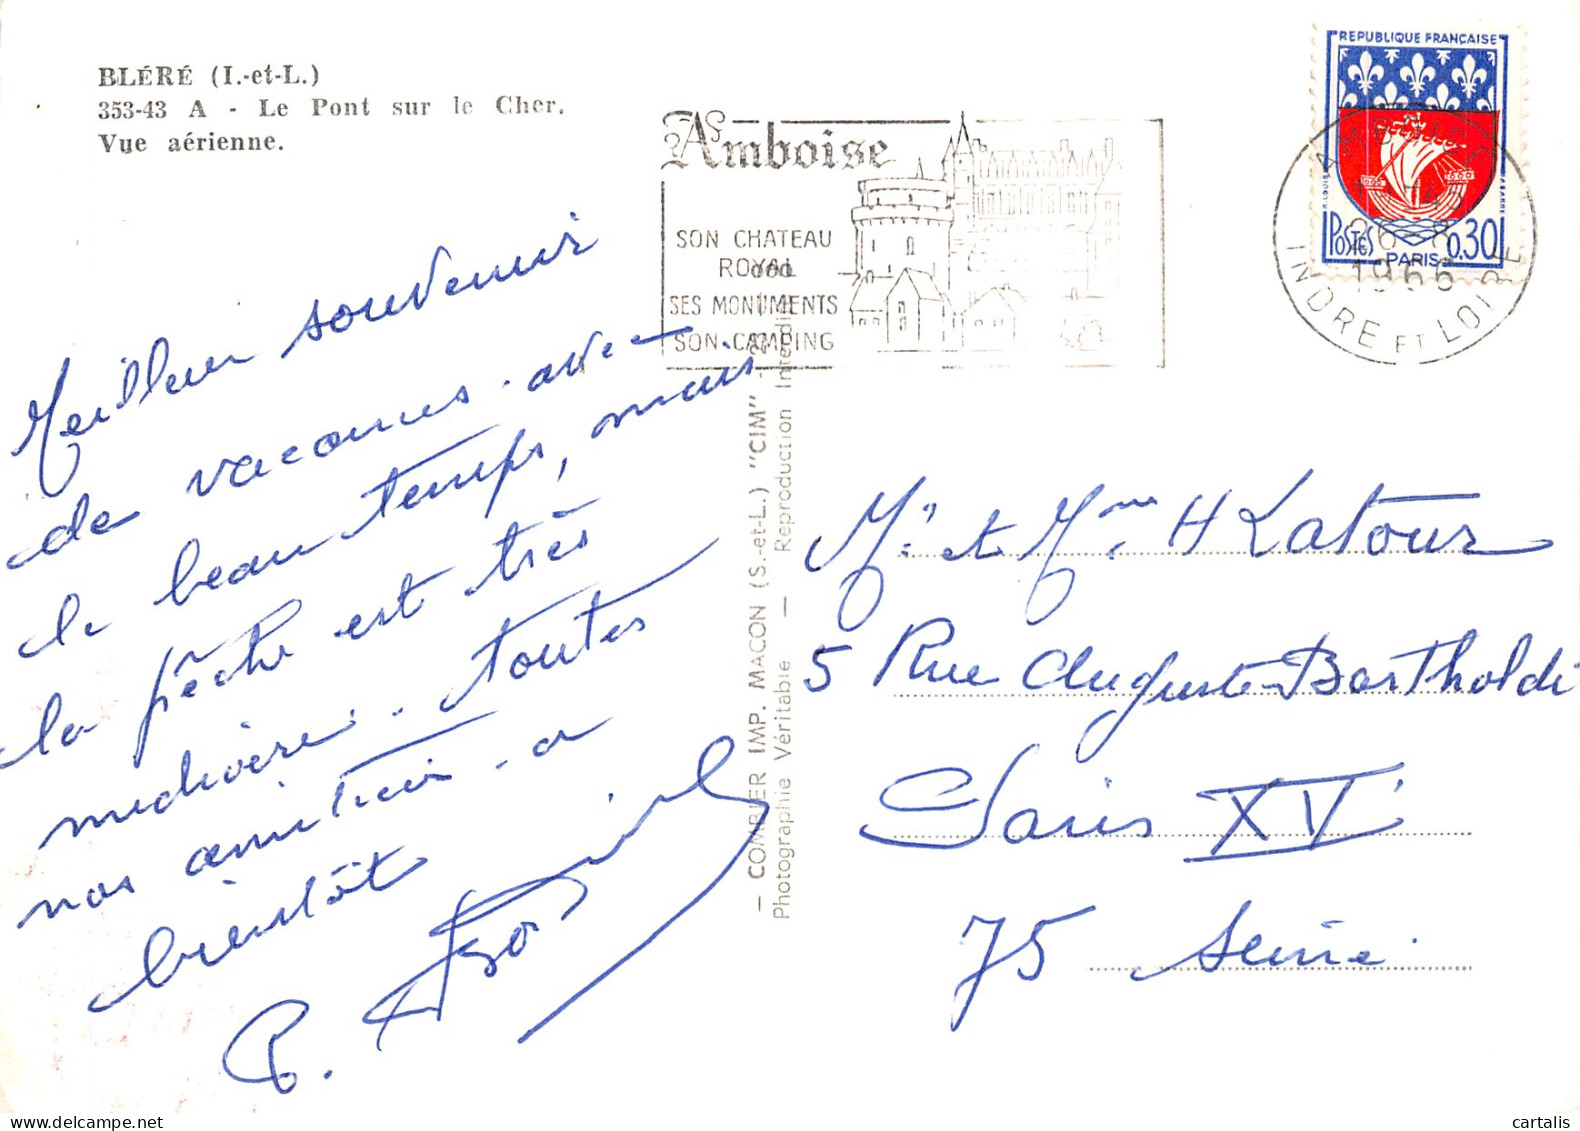 BLÉRÉ (I.-et-L.)
353-43 A - Le Pont sur le Cher.
Vue aérienne.
Amboise
SON CHATEAU
ROYAL
SES MONUMENTS
SON CAMPING
REPUBLIQUE FRANÇAISE
POSTES
PARIS
0.30
AMBOISE
26-8
1966
INDRE ET LOIRE
Meilleur souvenir
de vacances. avec
le beau temps, mais
la pêche est très
médiocre. toutes
nos amitiés. a
bientôt
— COMBIER IMP. MACON (S.-et-L.) "CIM"
Photographie Véritable — Reproduction Interdite
Mr et Mme H Latour
5 Rue Auguste Bartholdi
Paris XV
75 Seine